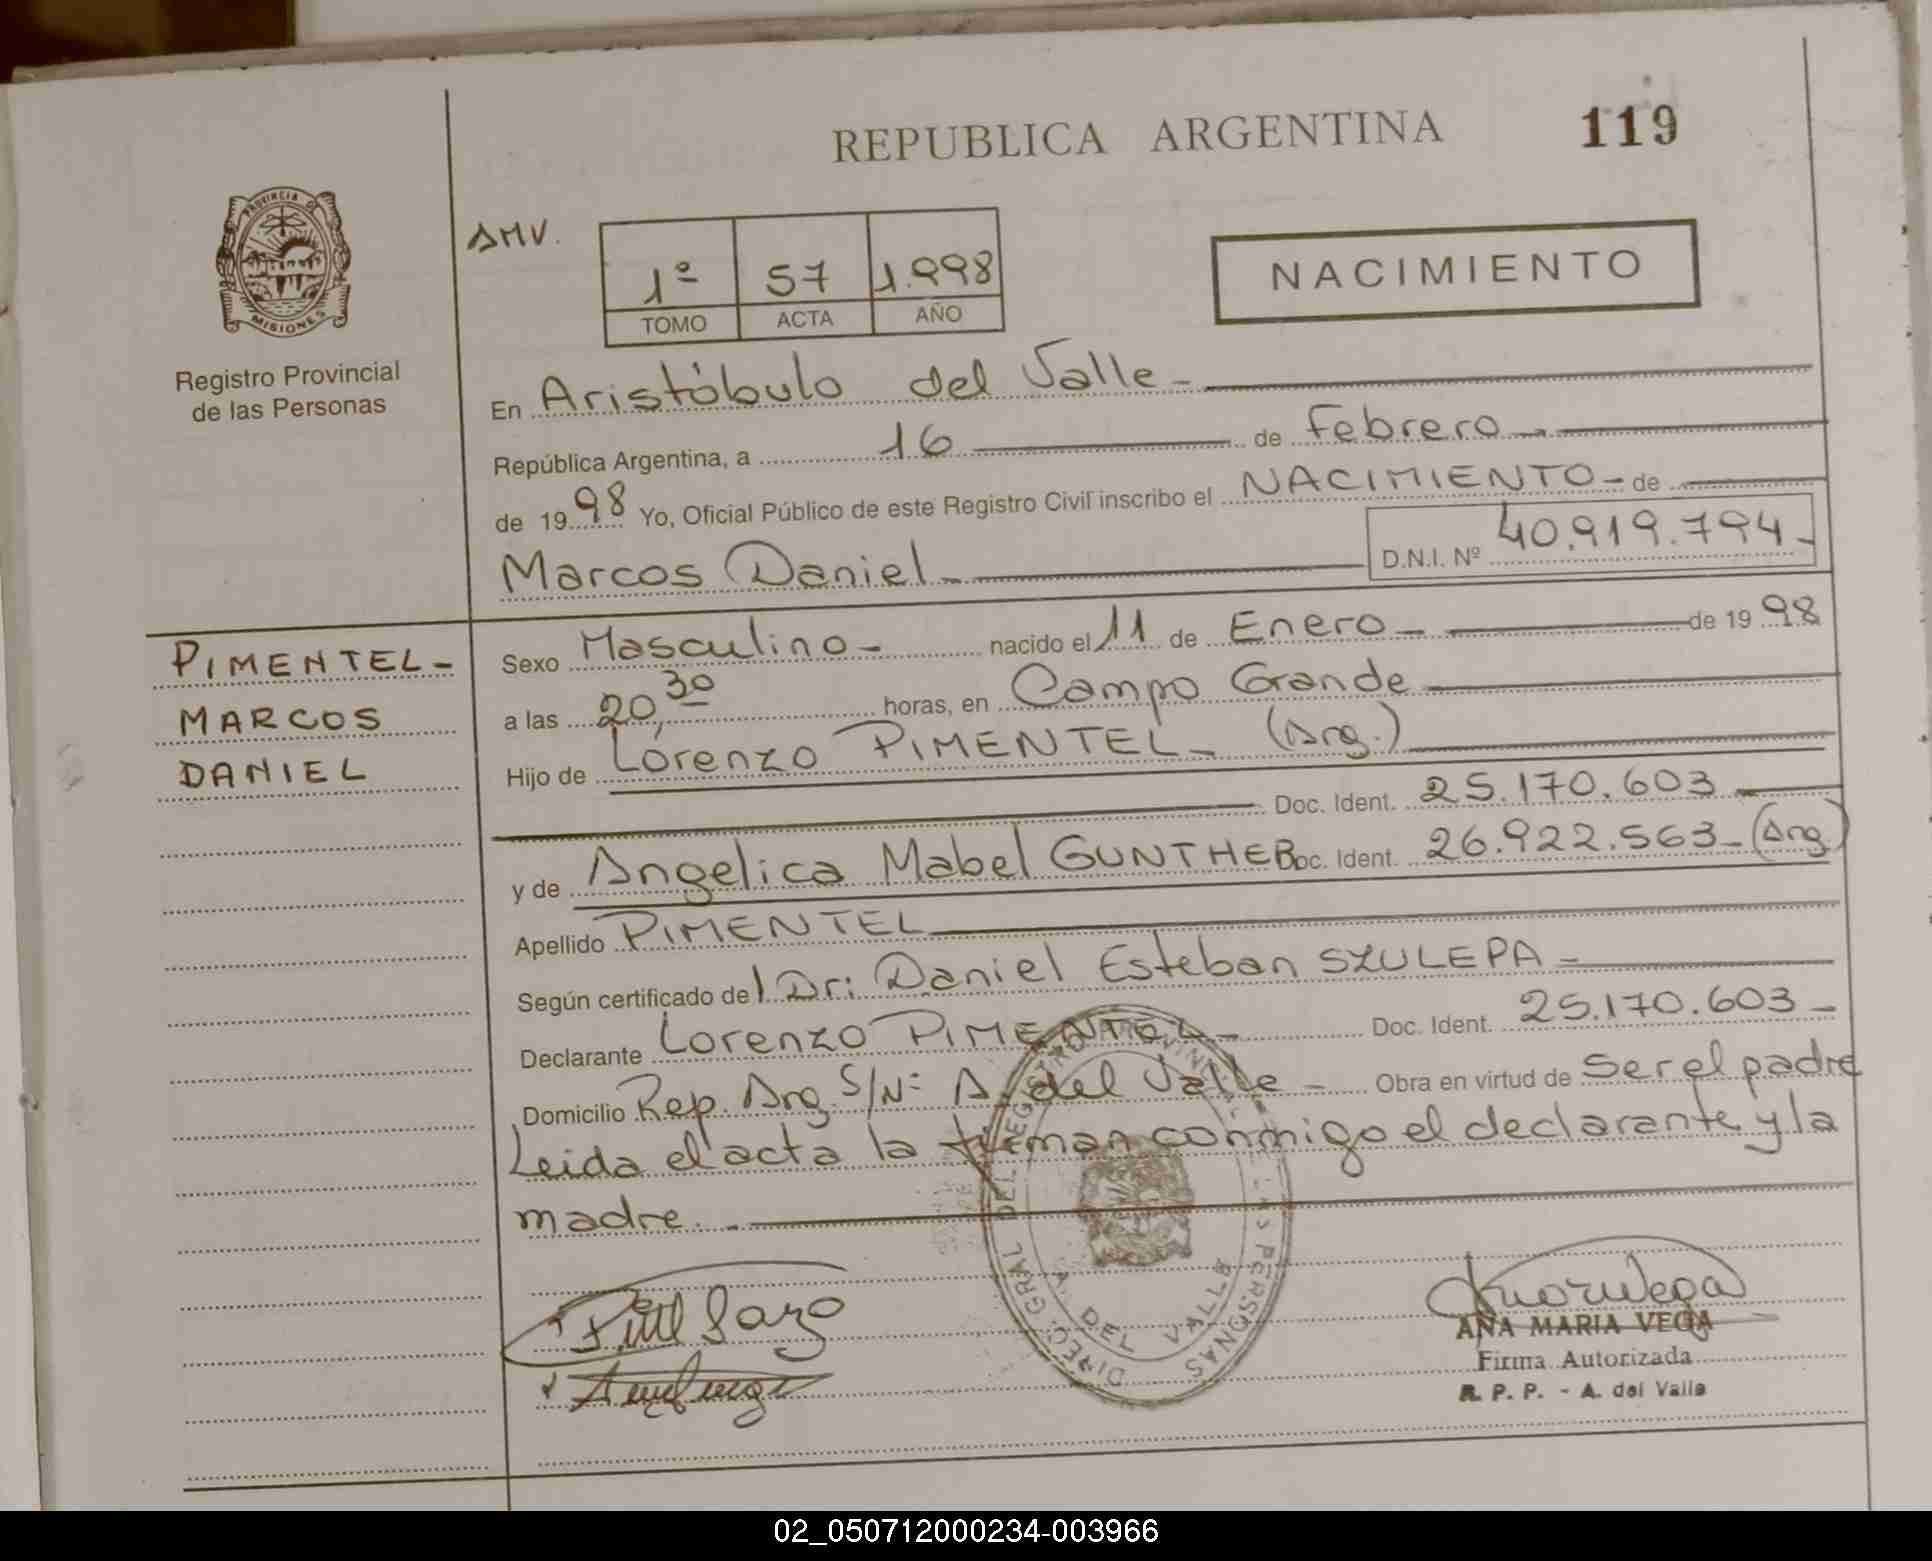 REPUBLICA ARGENTINA 119
PROVINCIA D
MISIONES
Registro Provincial
de las Personas
AMV.
1º 57 1.998
TOMO ACTA AÑO
NACIMIENTO
En Aristóbulo del Valle -
República Argentina, a 16 de Febrero
de 1998 Yo, Oficial Público de este Registro Civil inscribo el NACIMIENTO - de
Marcos Daniel D.N.I. Nº 40.919.794 -
PIMENTEL -
MARCOS
DANIEL
Sexo Masculino - nacido el 11 de Enero - de 1998
a las 20,30 horas, en Campo Grande
Hijo de Lorenzo PIMENTEL - (Arg.)
Doc. Ident. 25.170.603
y de Angelica Mabel GUNTHER Doc. Ident. 26.922.563 - (Arg.)
Apellido PIMENTEL
Según certificado del Dr: Daniel Esteban SZULEPA -
Declarante Lorenzo PIMENTEL - Doc. Ident. 25.170.603 -
Domicilio Rep. Arg. S/Nº A. del Valle - Obra en virtud de Ser el padre
Leida el acta la firman conmigo el declarante y la
madre. -
DIREC. GRAL DEL REGISTRO PROVIN PERSONAS
A. DEL VALLE
ANA MARIA VEGA
Firma Autorizada
R. P. P. - A. del Valle
02_050712000234-003966